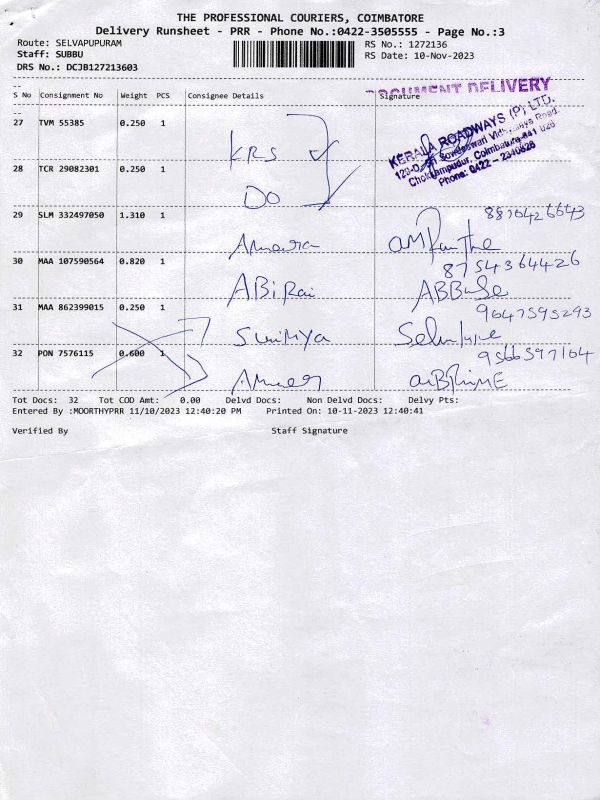 THE PROFESSIONAL COURIERS, COIMBATORE
Delivery Runsheet - PRR - Phone No.:0422-3505555 - Page No.:3
Route: SELVAPUPURAM
RS No.: 1272136
Staff: SUBBU
RS Date: 10-Nov-2023
DRS No.: DCJB127213603
DOCUMENT DELIVERY
S No Consignment No Weight PCS Consignee Details Signature
KERALA ROADWAYS (P) LTD.
Coimbatore-641 026
Phone: 0422 - 2340828
27 TVM 55385 0.250 1 KRS
28 TCR 29082301 0.250 1 DO
29 SLM 332497050 1.310 1
30 MAA 107590564 0.820 1 ABiRai
8754364426
31 MAA 862399015 0.250 1
9647595293
32 PON 7576115 0.600 1
9566597164
Tot Docs: 32 Tot COD Amt: 0.00 Delvd Docs: Non Delvd Docs: Delvy Pts:
Entered By :MOORTHYPRR 11/10/2023 12:40:20 PM Printed On: 10-11-2023 12:40:41
Verified By Staff Signature